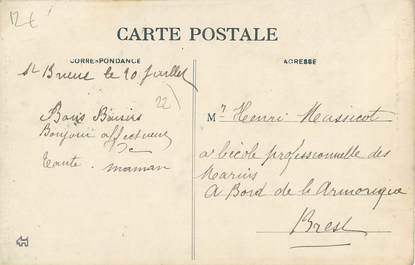 12 €
CARTE POSTALE
CORRESPONDANCE
ADRESSE
St Brieuc le 20 Juillet
22)
Bons Baisers
Bonjour affectueux
De
tante. maman
Mr Henri Massicot
a lécole professionnelle des
Marins
a Bord de l'Armorique
Brest